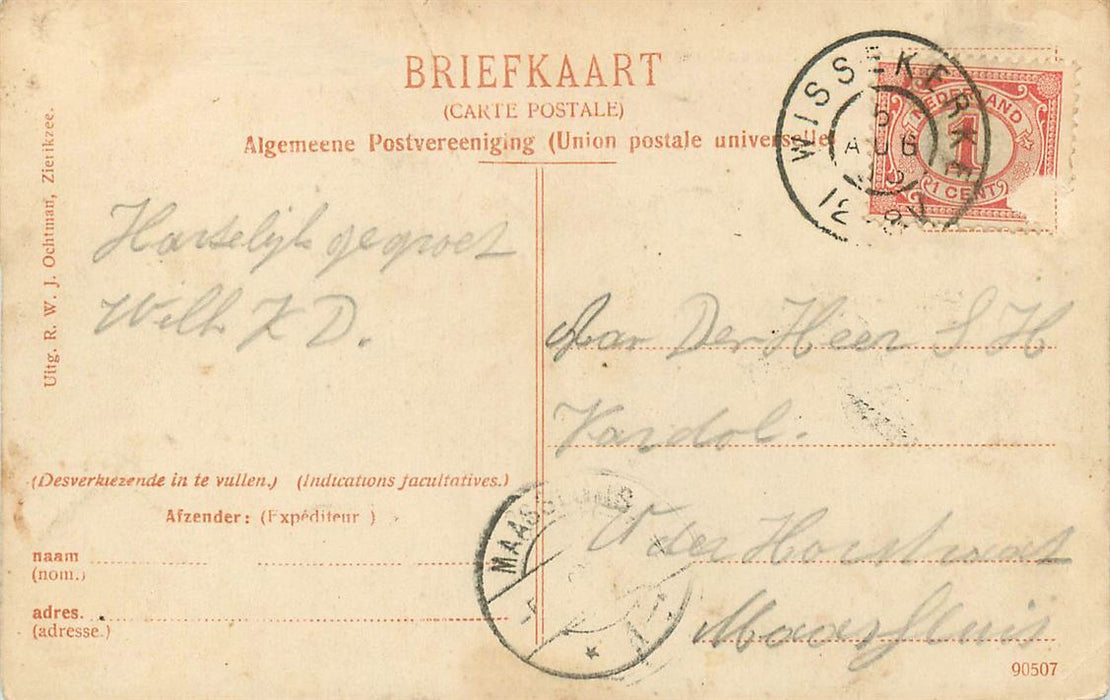 BRIEFKAART
(CARTE POSTALE)
Algemeene Postvereeniging (Union postale universelle)
WISSEKERKE
5
AUG
12
8V
NEDERLAND
1
1 CENT
Uitg. R. W. J. Ochtman, Zierikzee.
Hartelijk gegroet
Wilh K D.
Aan Der Heer S H
Kardol.
V der Horststraat
Maassluis
(Desverkiezende in te vullen.) (Indications facultatives.)
Afzender: (Expéditeur )
naam
(nom.)
adres.
(adresse.)
MAASSLUIS
90507